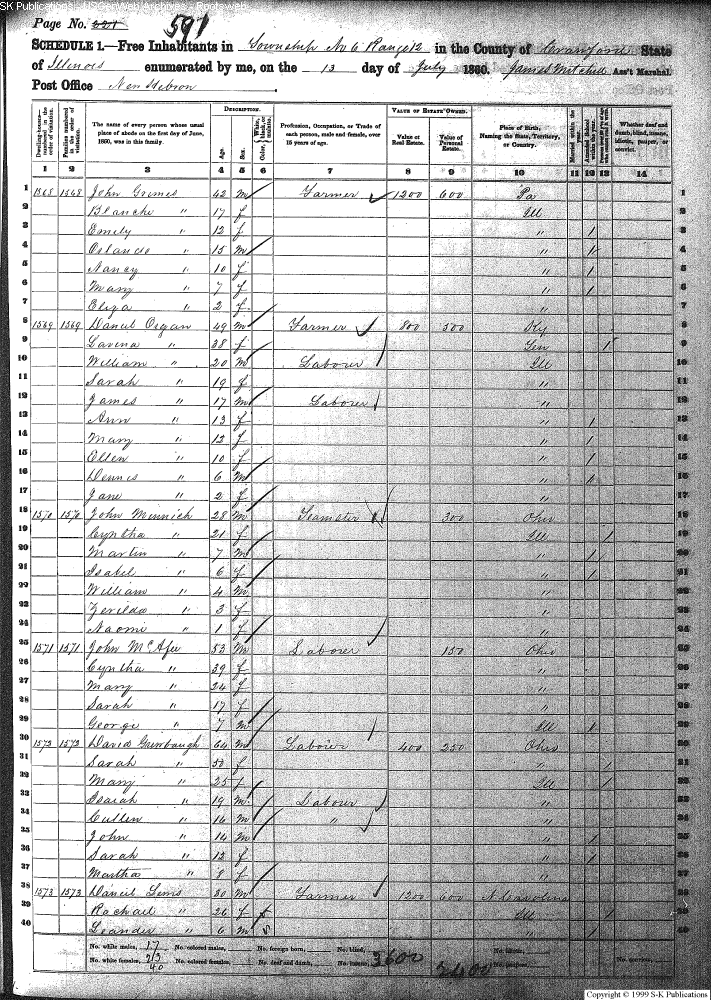 SK Publications - USGenWeb Archives - Rootsweb
Page No. 221 591
SCHEDULE 1.—Free Inhabitants in Township No 6 Range 12 in the County of Crawford State
of Illinois enumerated by me, on the 13 day of July 1860. James Mitchell Ass't Marshal.
Post Office New Hebron
Dwelling-houses—numbered in the order of visitation.
Families numbered in the order of visitation.
The name of every person whose usual place of abode on the first day of June, 1860, was in this family.
DESCRIPTION.
Age.
Sex.
Color, White, black, or mulatto.
Profession, Occupation, or Trade of each person, male and female, over 15 years of age.
VALUE OF ESTATE OWNED.
Value of Real Estate.
Value of Personal Estate.
Place of Birth, Naming the State, Territory, or Country.
Married within the year.
Attended School within the year.
Whether deaf and dumb, blind, insane, idiotic, pauper, or convict.
1 2 3 4 5 6 7 8 9 10 11 12 13 14
1 1568 1568 John Grimes 42 m Farmer 1200 600 Pa 1
2 Blanche " 17 f Ill 2
3 Emily " 12 f " / 3
4 Orlando " 15 m " / 4
5 Nancy " 10 f " / 5
6 Mary " 7 f " / 6
7 Eliza " 2 f " 7
8 1569 1569 Daniel Organ 49 m Farmer 800 500 Ky 8
9 Lavina " 38 f Ten / 9
10 William " 20 m Laborer Ill 10
11 Sarah " 19 f " 11
12 James " 17 m Laborer " 12
13 Ann " 13 f " / 13
14 Mary " 12 f " / 14
15 Ellen " 10 f " / 15
16 Dennis " 6 m " / 16
17 Jane " 2 f " 17
18 1570 1570 John Minnich 28 m Teamster 300 Ohio 18
19 Cyntha " 21 f Ill / 19
20 Martin " 7 m " / 20
21 Isabel " 6 f " / 21
22 William " 4 m " 22
23 Zerilda " 3 f " 23
24 Naomi " 1 f " 24
25 1571 1571 John McAfee 53 m Laborer 150 Ohio 25
26 Cyntha " 39 f " 26
27 Mary " 24 f " 27
28 Sarah " 17 f " 28
29 George " 7 m Ill / 29
30 1572 1572 David Grinbaugh 64 m Laborer 400 250 Ohio 30
31 Sarah " 50 f " / 31
32 Mary " 25 f Ill / 32
33 Isaiah " 19 m Labour " 33
34 Cullen " 16 m " " 34
35 John " 14 m " / 35
36 Sarah " 12 f " / 36
37 Martha " 8 f " 37
38 1573 1573 Daniel Lems 30 m Farmer 1200 600 N Carolina 38
39 Rachael " 26 f Ill / 39
40 Leander " 6 m " / 40
No. white males, 17 No. colored males, No. foreign born, No. blind,
No. white females, 23 No. colored females, No. deaf and dumb, No. insane,
40 3600 2400
Copyright © 1999 S-K Publications